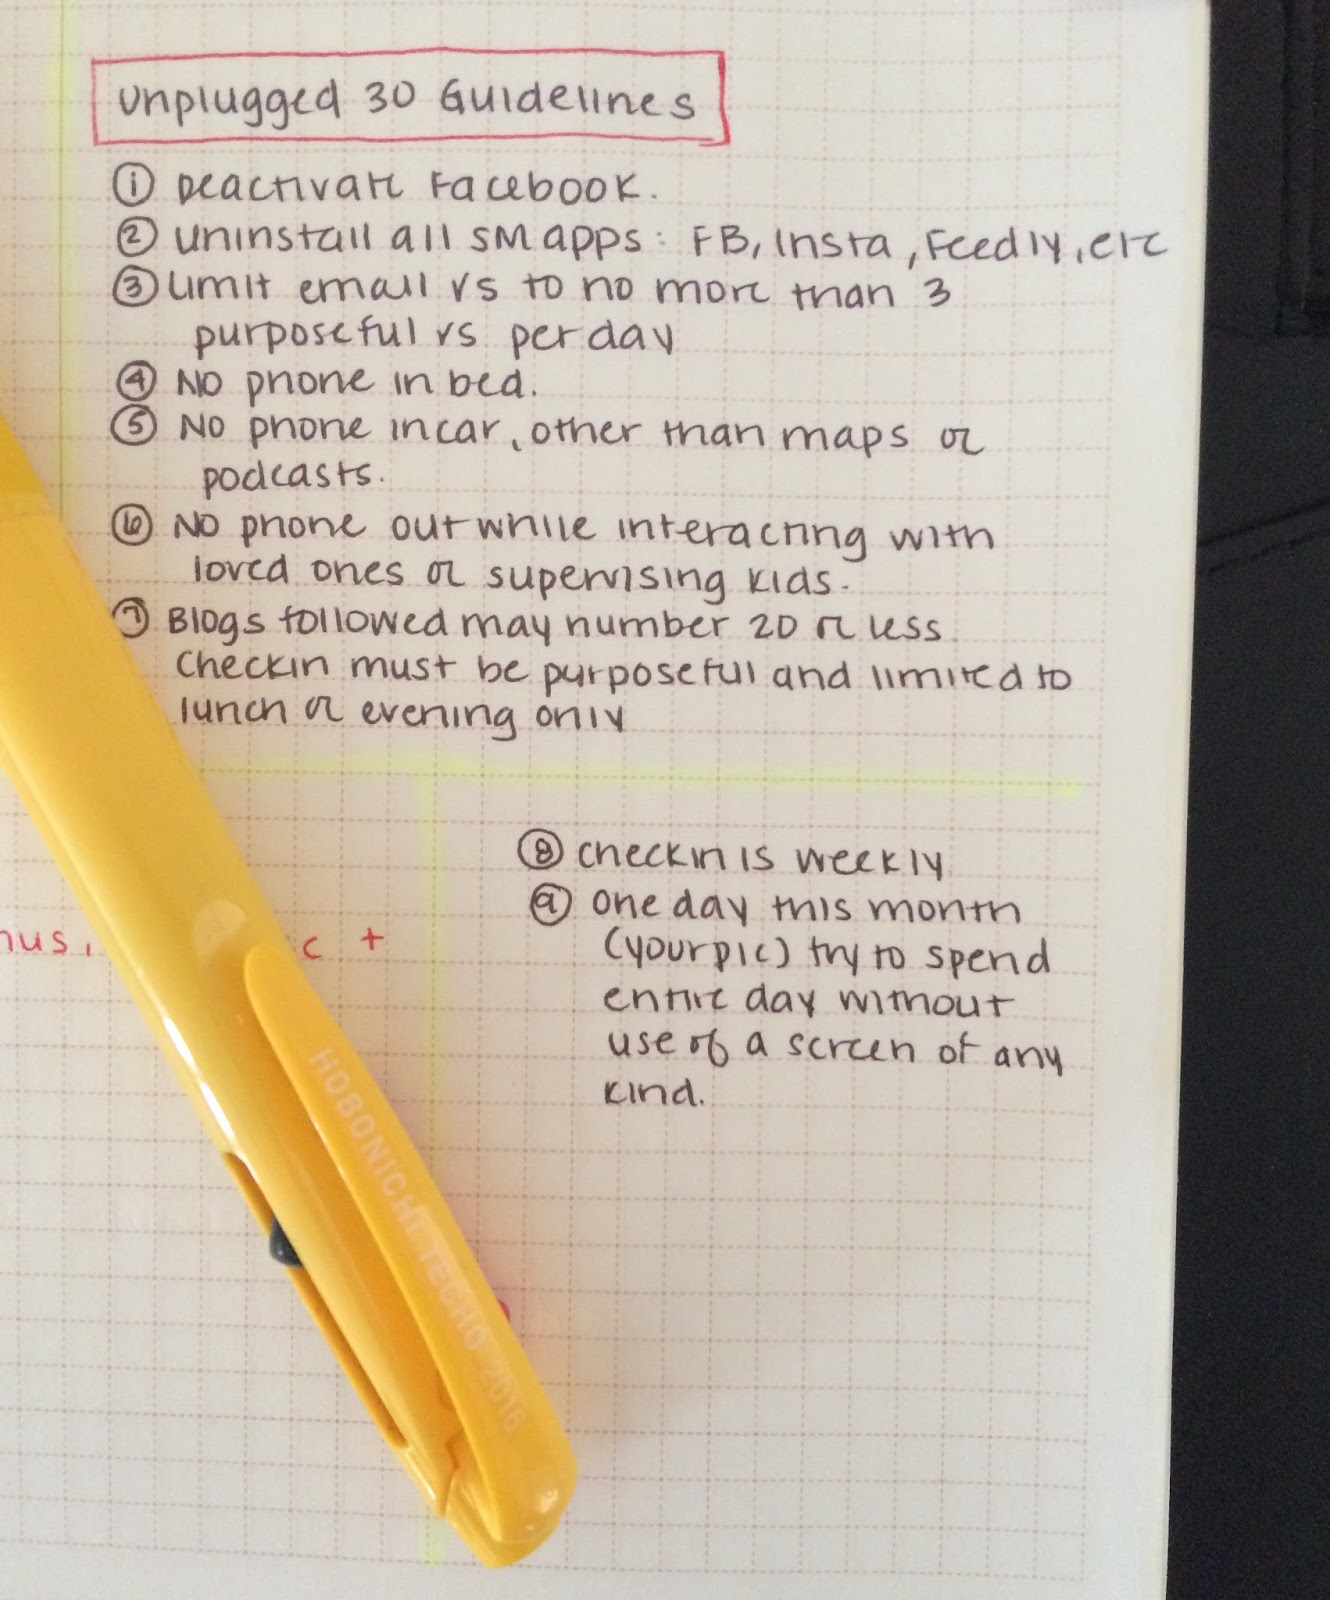 Unplugged 30 Guidelines
① Deactivate Facebook.
② Uninstall all SM apps: FB, Insta, Feedly, etc
③ Limit email √s to no more than 3
purposeful √s per day
④ No phone in bed.
⑤ No phone in car, other than maps or
podcasts.
⑥ No phone out while interacting with
loved ones or supervising kids.
⑦ Blogs followed may number 20 or less.
Checkin must be purposeful and limited to
lunch or evening only
⑧ Checkin is weekly
⑨ One day this month
(your pic) try to spend
entire day without
use of a screen of any
kind.
c +
HOBONICHI TECHO 2016